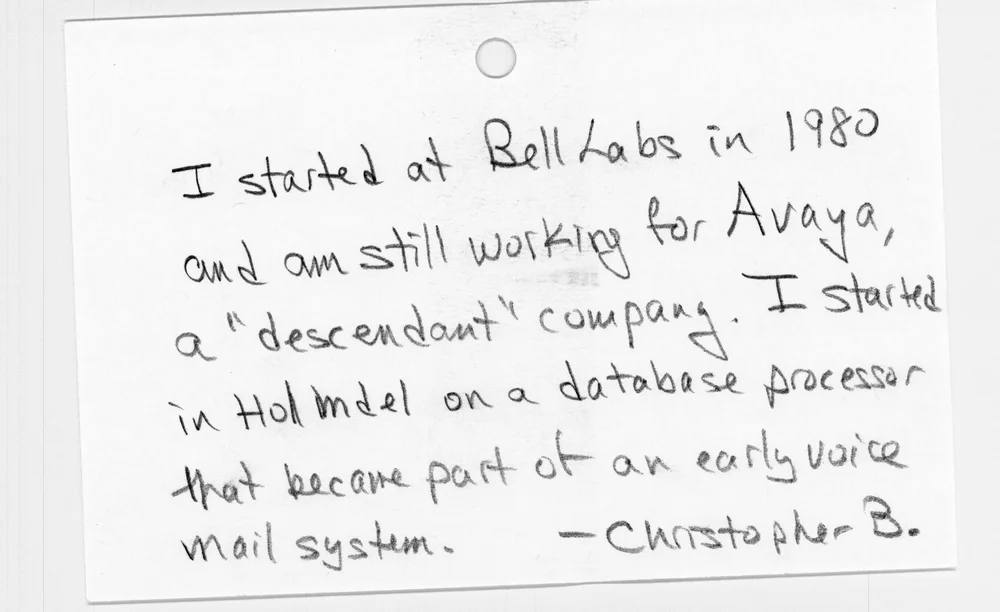 I started at Bell Labs in 1980
and am still working for Avaya,
a "descendant" company. I started
in Holmdel on a database processor
that became part of an early voice
mail system. — Christopher B.